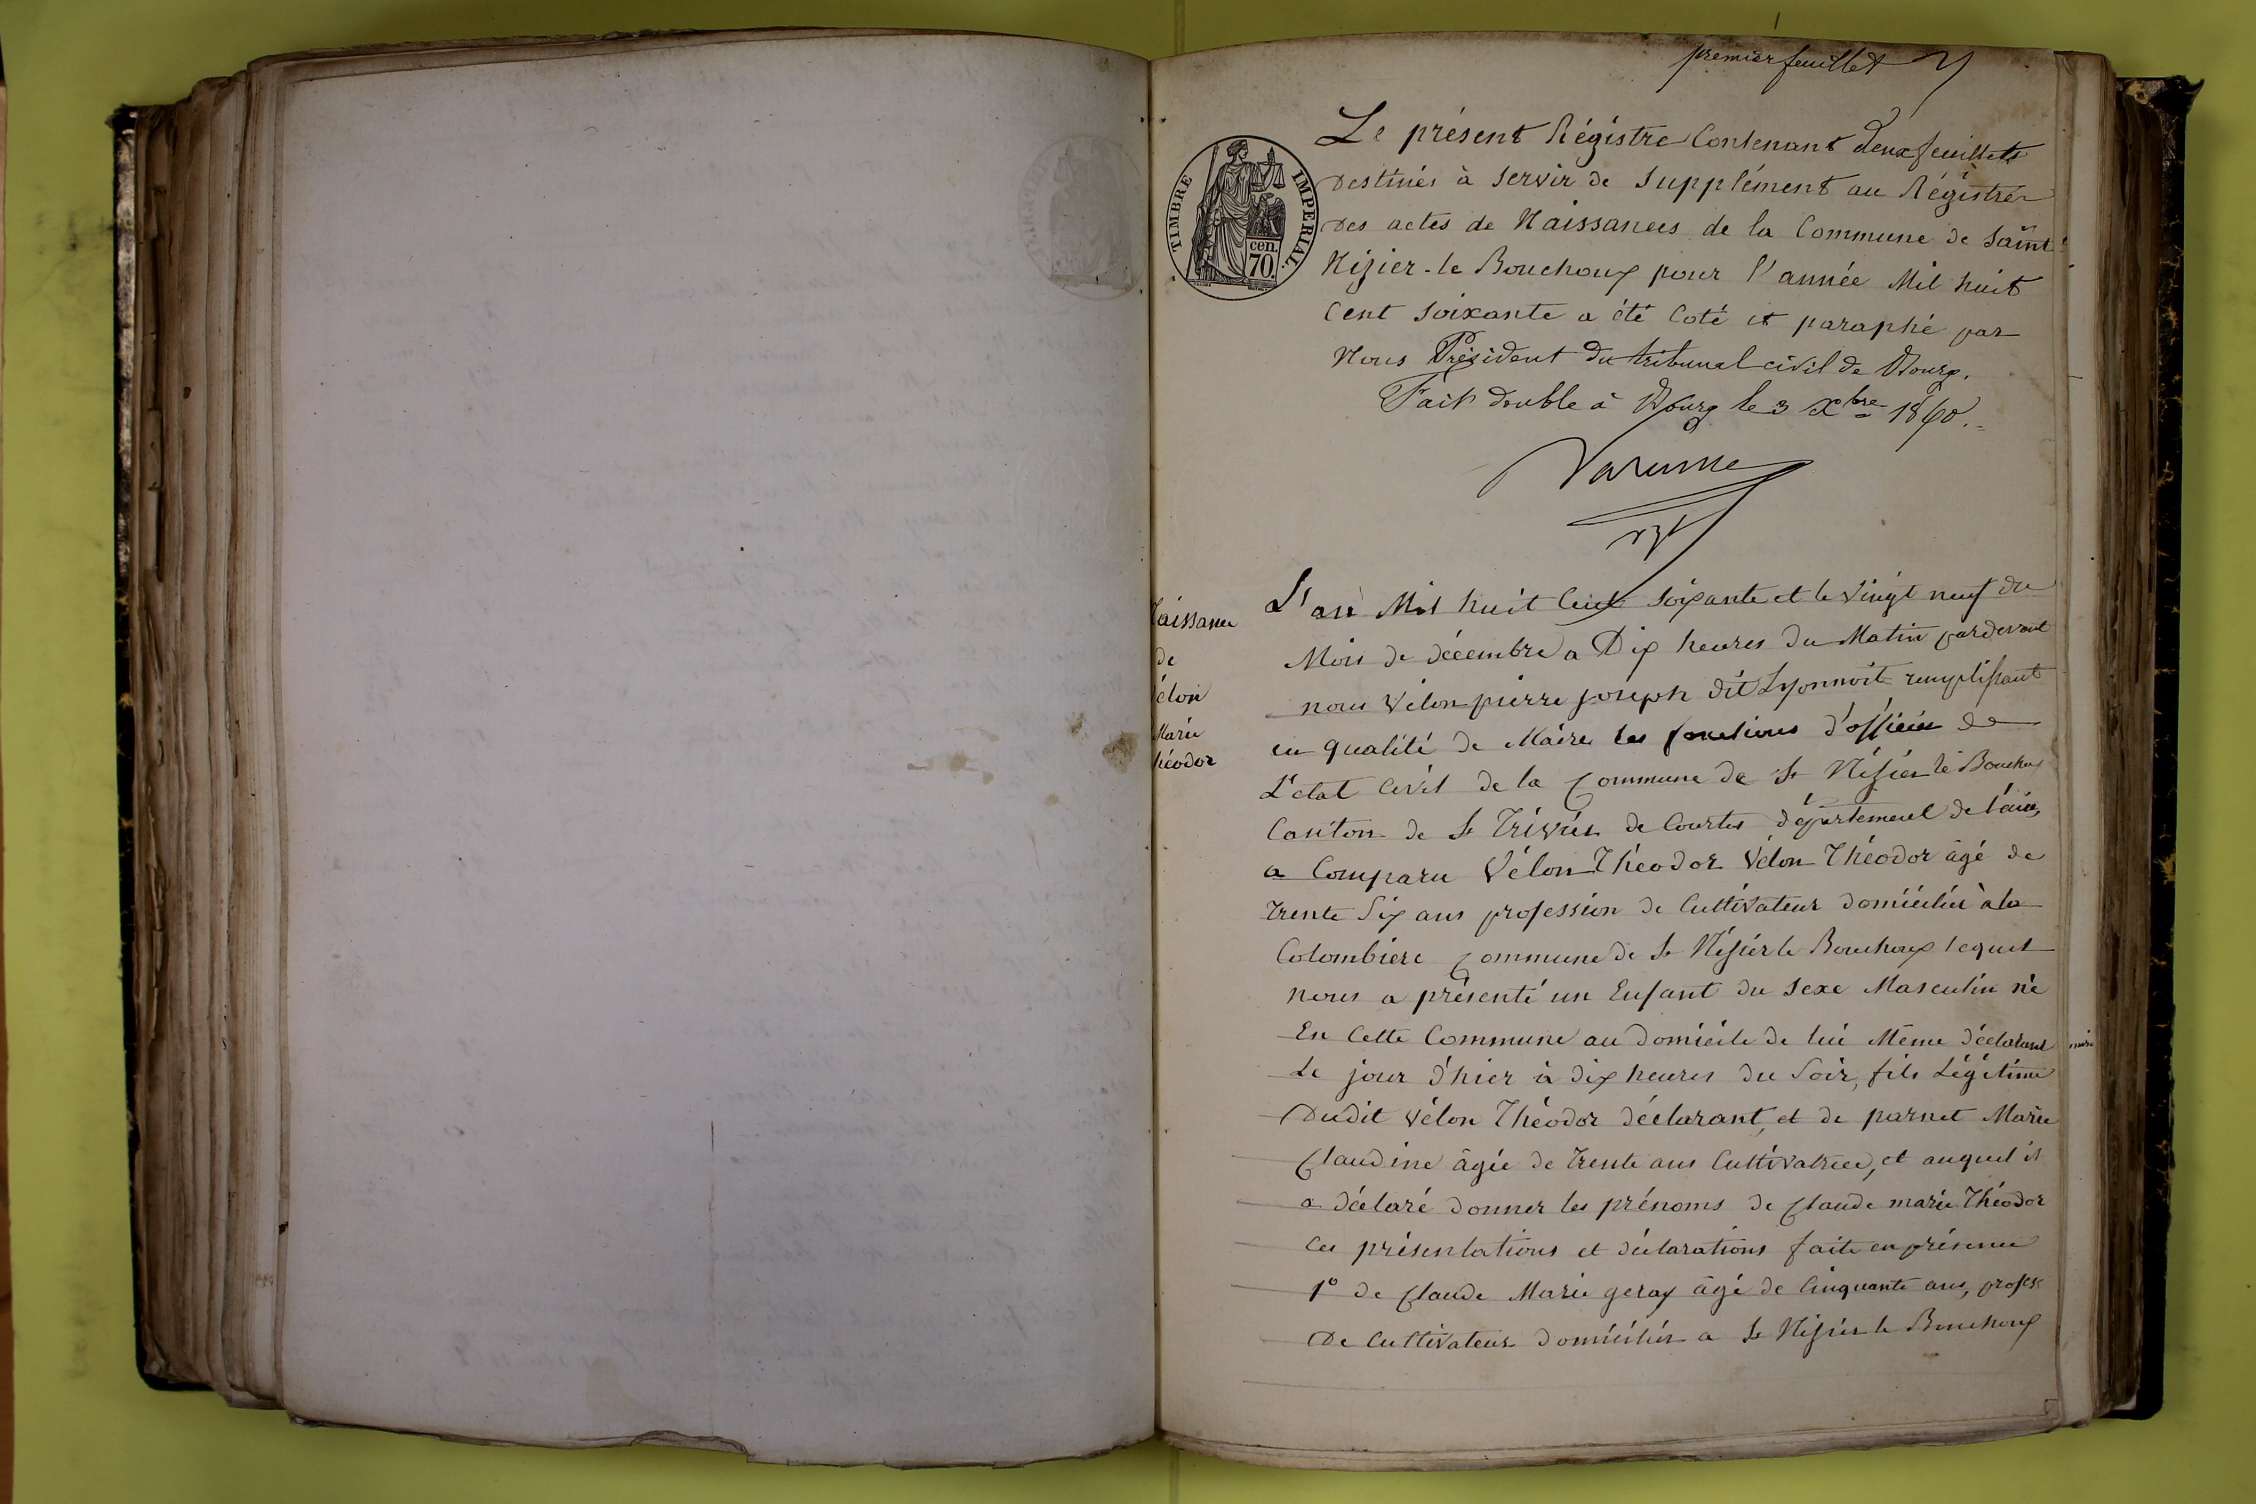 premier feuillet
Le présent Régistre Contenant deux feuillets
destinés à servir de Supplément au Régistre
des actes de Naissances de la Commune de Saint
Nizier-le Bouchoux pour l'année Mil huit
Cent soixante a été Coté et paraphé par
Nous Président du tribunal civil de Bourg.
Fait double à Bourg le 3 Xbre 1860.
TIMBRE IMPERIAL.
cen.
70.
L'an Mil huit Cent soixante et le vingt neuf du
Mois de décembre a Dix heures du Matin pardevant
nous Vélon pierre joseph dit Lyonnoit remplissant
en qualité de Maire les fonctions d'officier de
L'état Civil de la Commune de St Nésier le Bouchoux
Canton de St Trivier de Courtes département de l'ain,
a Comparu Vélon Théodor Vélon Théodor âgé de
trente Six ans profession de Cultivateur domicilier à la
Colombière Commune de St Nésier le Bouchoux lequel
nous a présenté un Enfant du sexe Masculin né
En Cette Commune au domicile de lui Même déclarant
Le jour d'hier à dix heures du Soir, fils Légitime
Dudit Vélon Théodor déclarant, et de parnet Marie
Claudine âgée de trente ans Cultivatrice, et auquel il
a déclaré donner les prénoms de Claude marie Théodor
Ces présentations et déclarations faite en présence
1° de Claude Marie geray âgé de Cinquante ans, profess
De Cultivateur domicilier a St Nésier le Bouchoux
aissance
de
élon
Marie
héodor